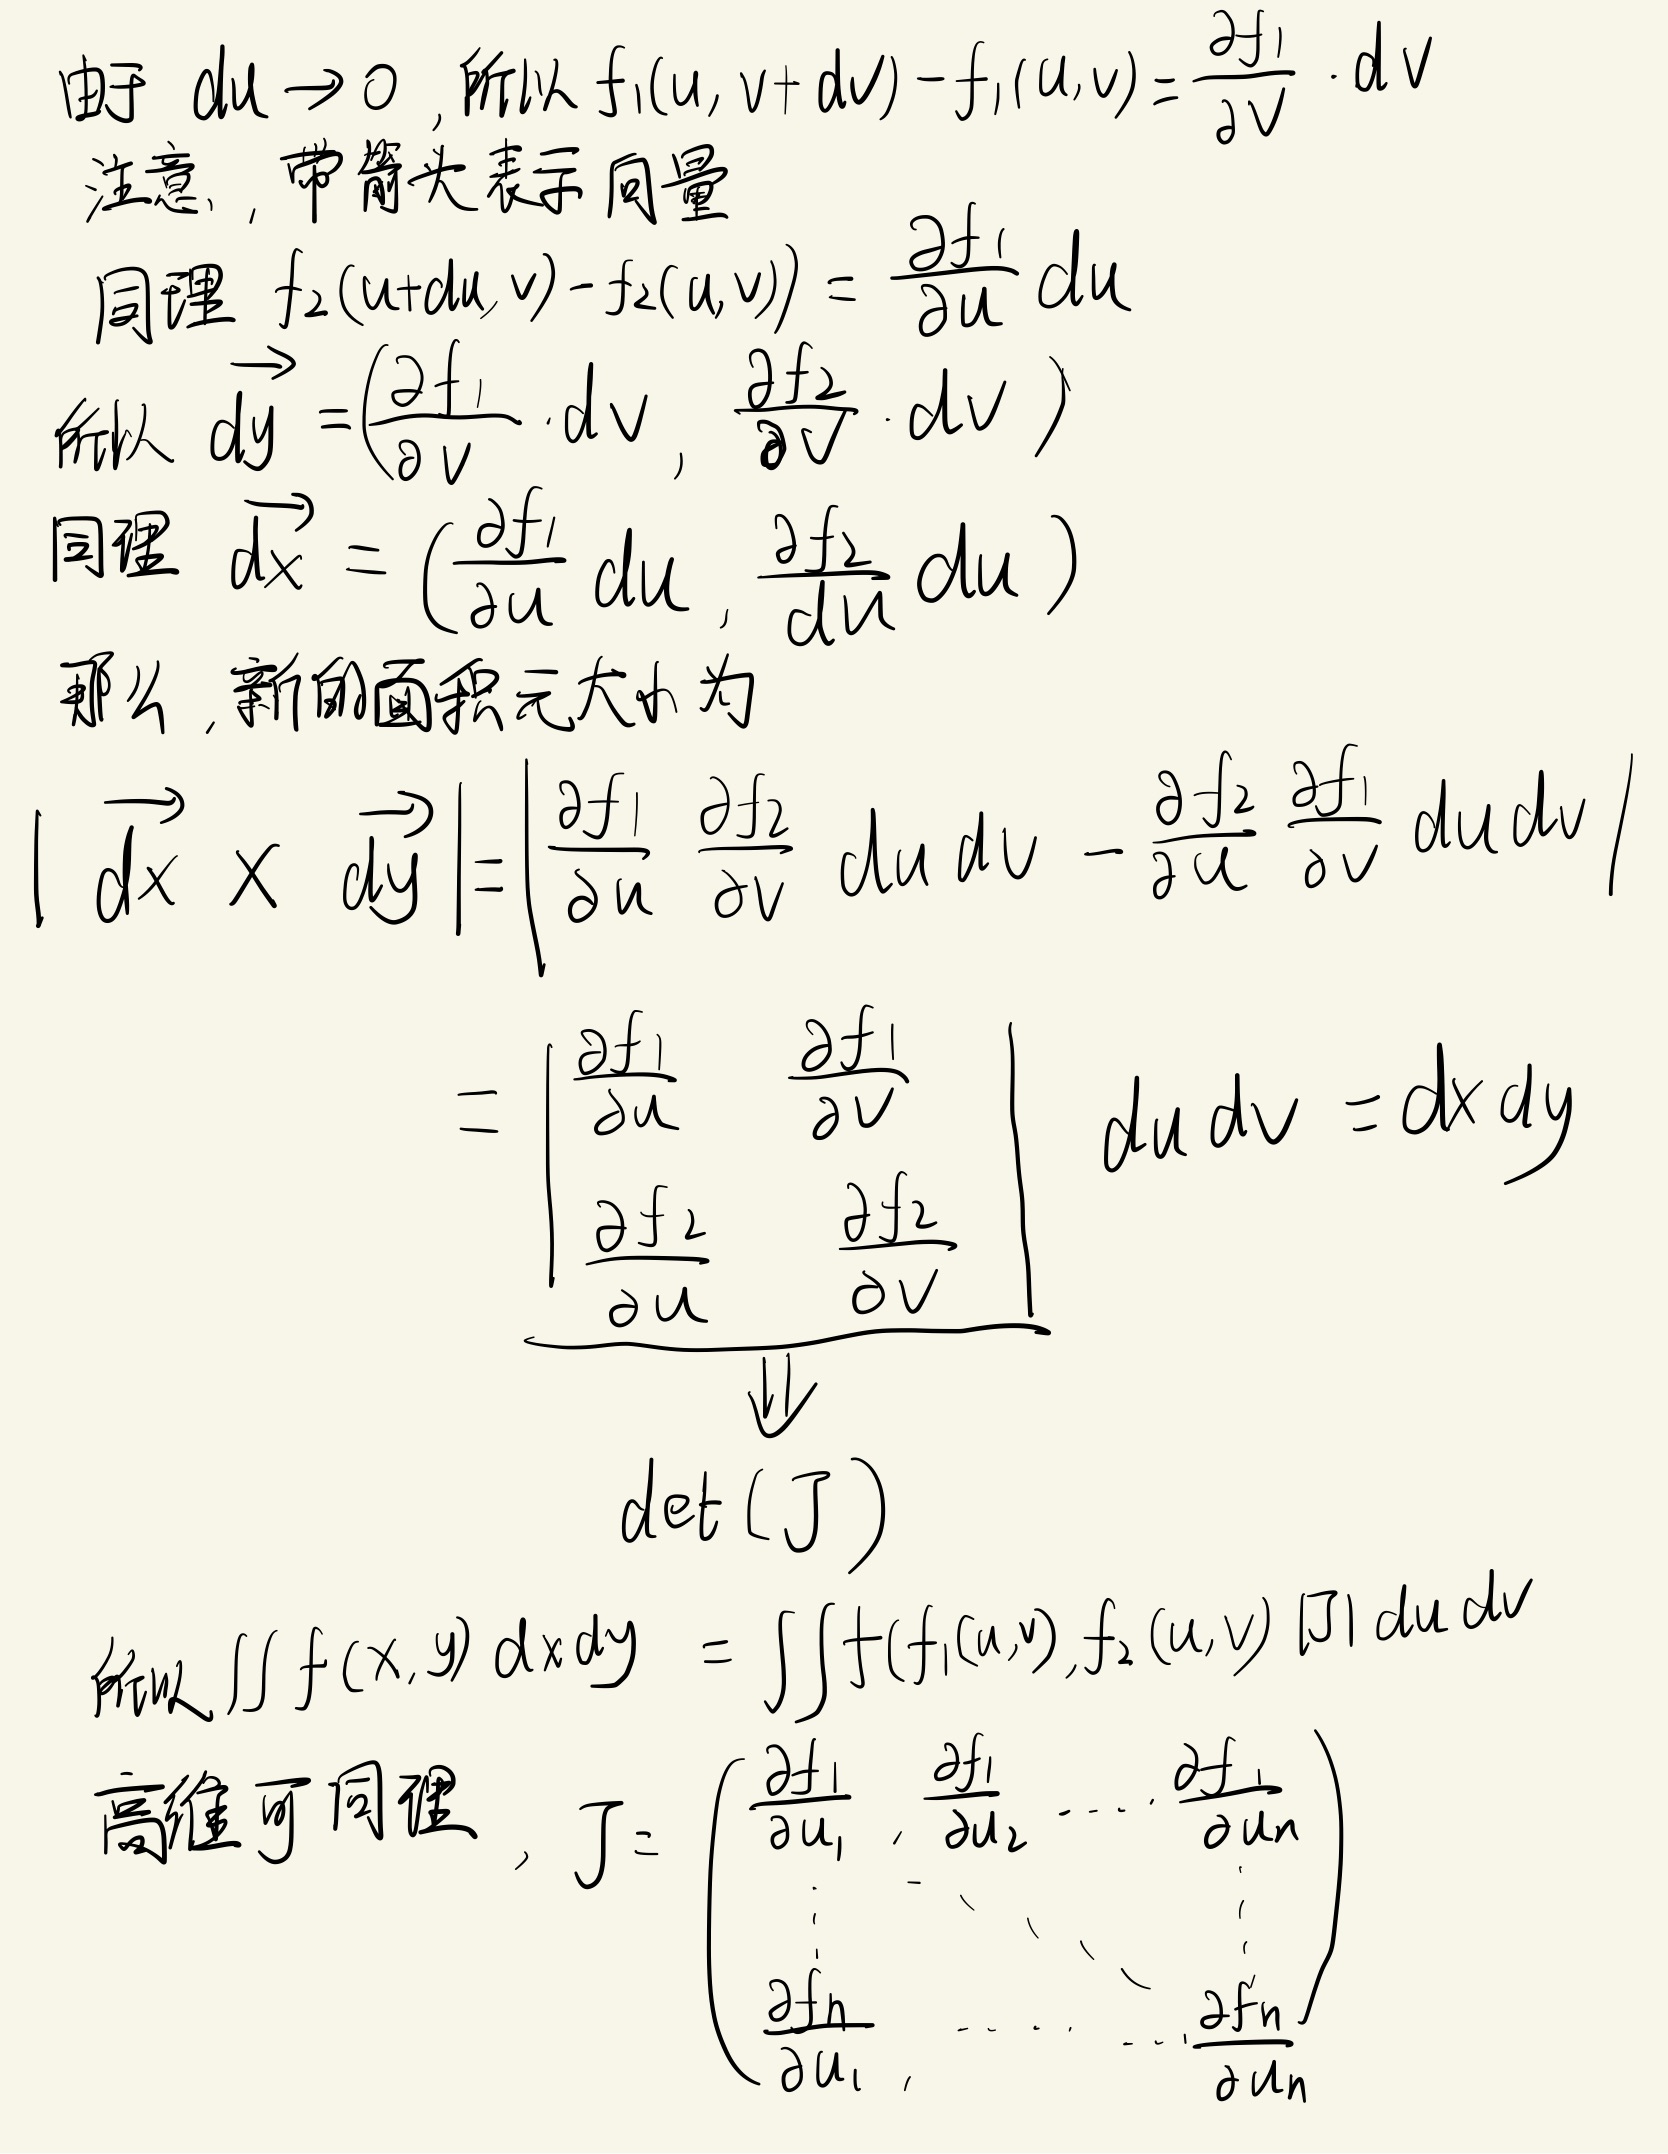 由于 du → 0, 所以 f₁(u, v+dv) - f₁(u,v) = ∂f₁/∂v · dv
注意, 带箭头表示向量
同理 f₂(u+du, v) - f₂(u,v)) = ∂f₁/∂u du
所以 \vec{dy} = (∂f₁/∂v · dv, ∂f₂/∂v · dv)
同理 \vec{dx} = (∂f₁/∂u du, ∂f₂/du du)
那么, 新的面积元大小为
| \vec{dx} × \vec{dy} | = | ∂f₁/∂u ∂f₂/∂v du dv - ∂f₂/∂u ∂f₁/∂v du dv |
= | ∂f₁/∂u ∂f₁/∂v
∂f₂/∂u ∂f₂/∂v | du dv = dx dy
⇓
det(J)
所以 ∬ f(x,y) dx dy = ∬ f(f₁(u,v), f₂(u,v) |J| du dv
高维可同理, J = ( ∂f₁/∂u₁, ∂f₁/∂u₂ ···· ∂f₁/∂uₙ
∂fₙ/∂u₁, ······· ∂fₙ/∂uₙ )